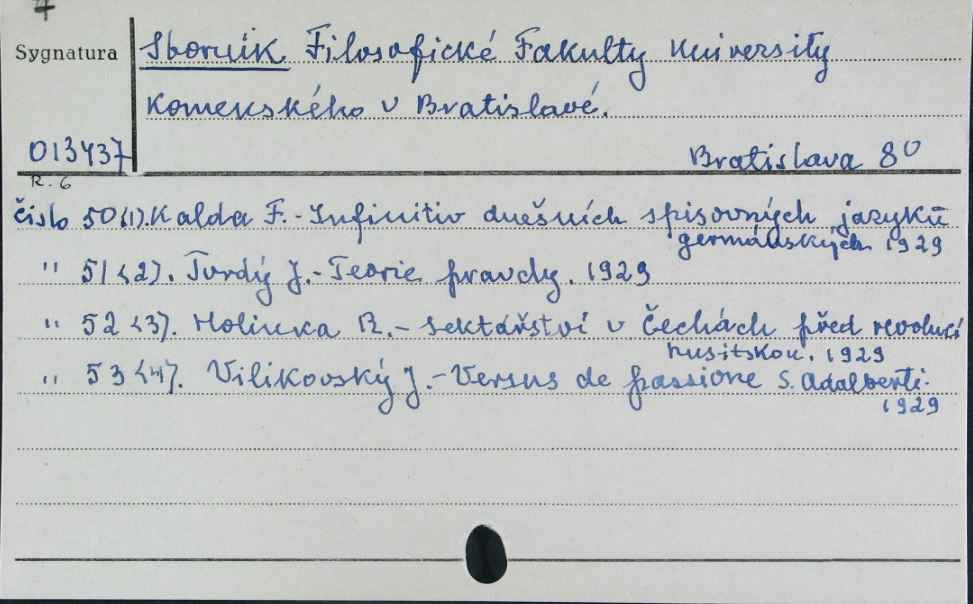 7
Sygnatura
Sborník Filosofické Fakulty University
Komenského v Bratislavé.
013437
Bratislava 8°
R. 6
čislo 50(1). Kalda F. - Infinitiv dnešních spisovných jazyků
germánských 1929
" 51(2). Tvrdý J. - Teorie pravdy. 1929
" 52(3). Holinka R. - Sektářství v Čechách před revolucí
husitskou. 1929
" 53(4). Vilikovský J. - Versus de passione S. Adalberti.
1929